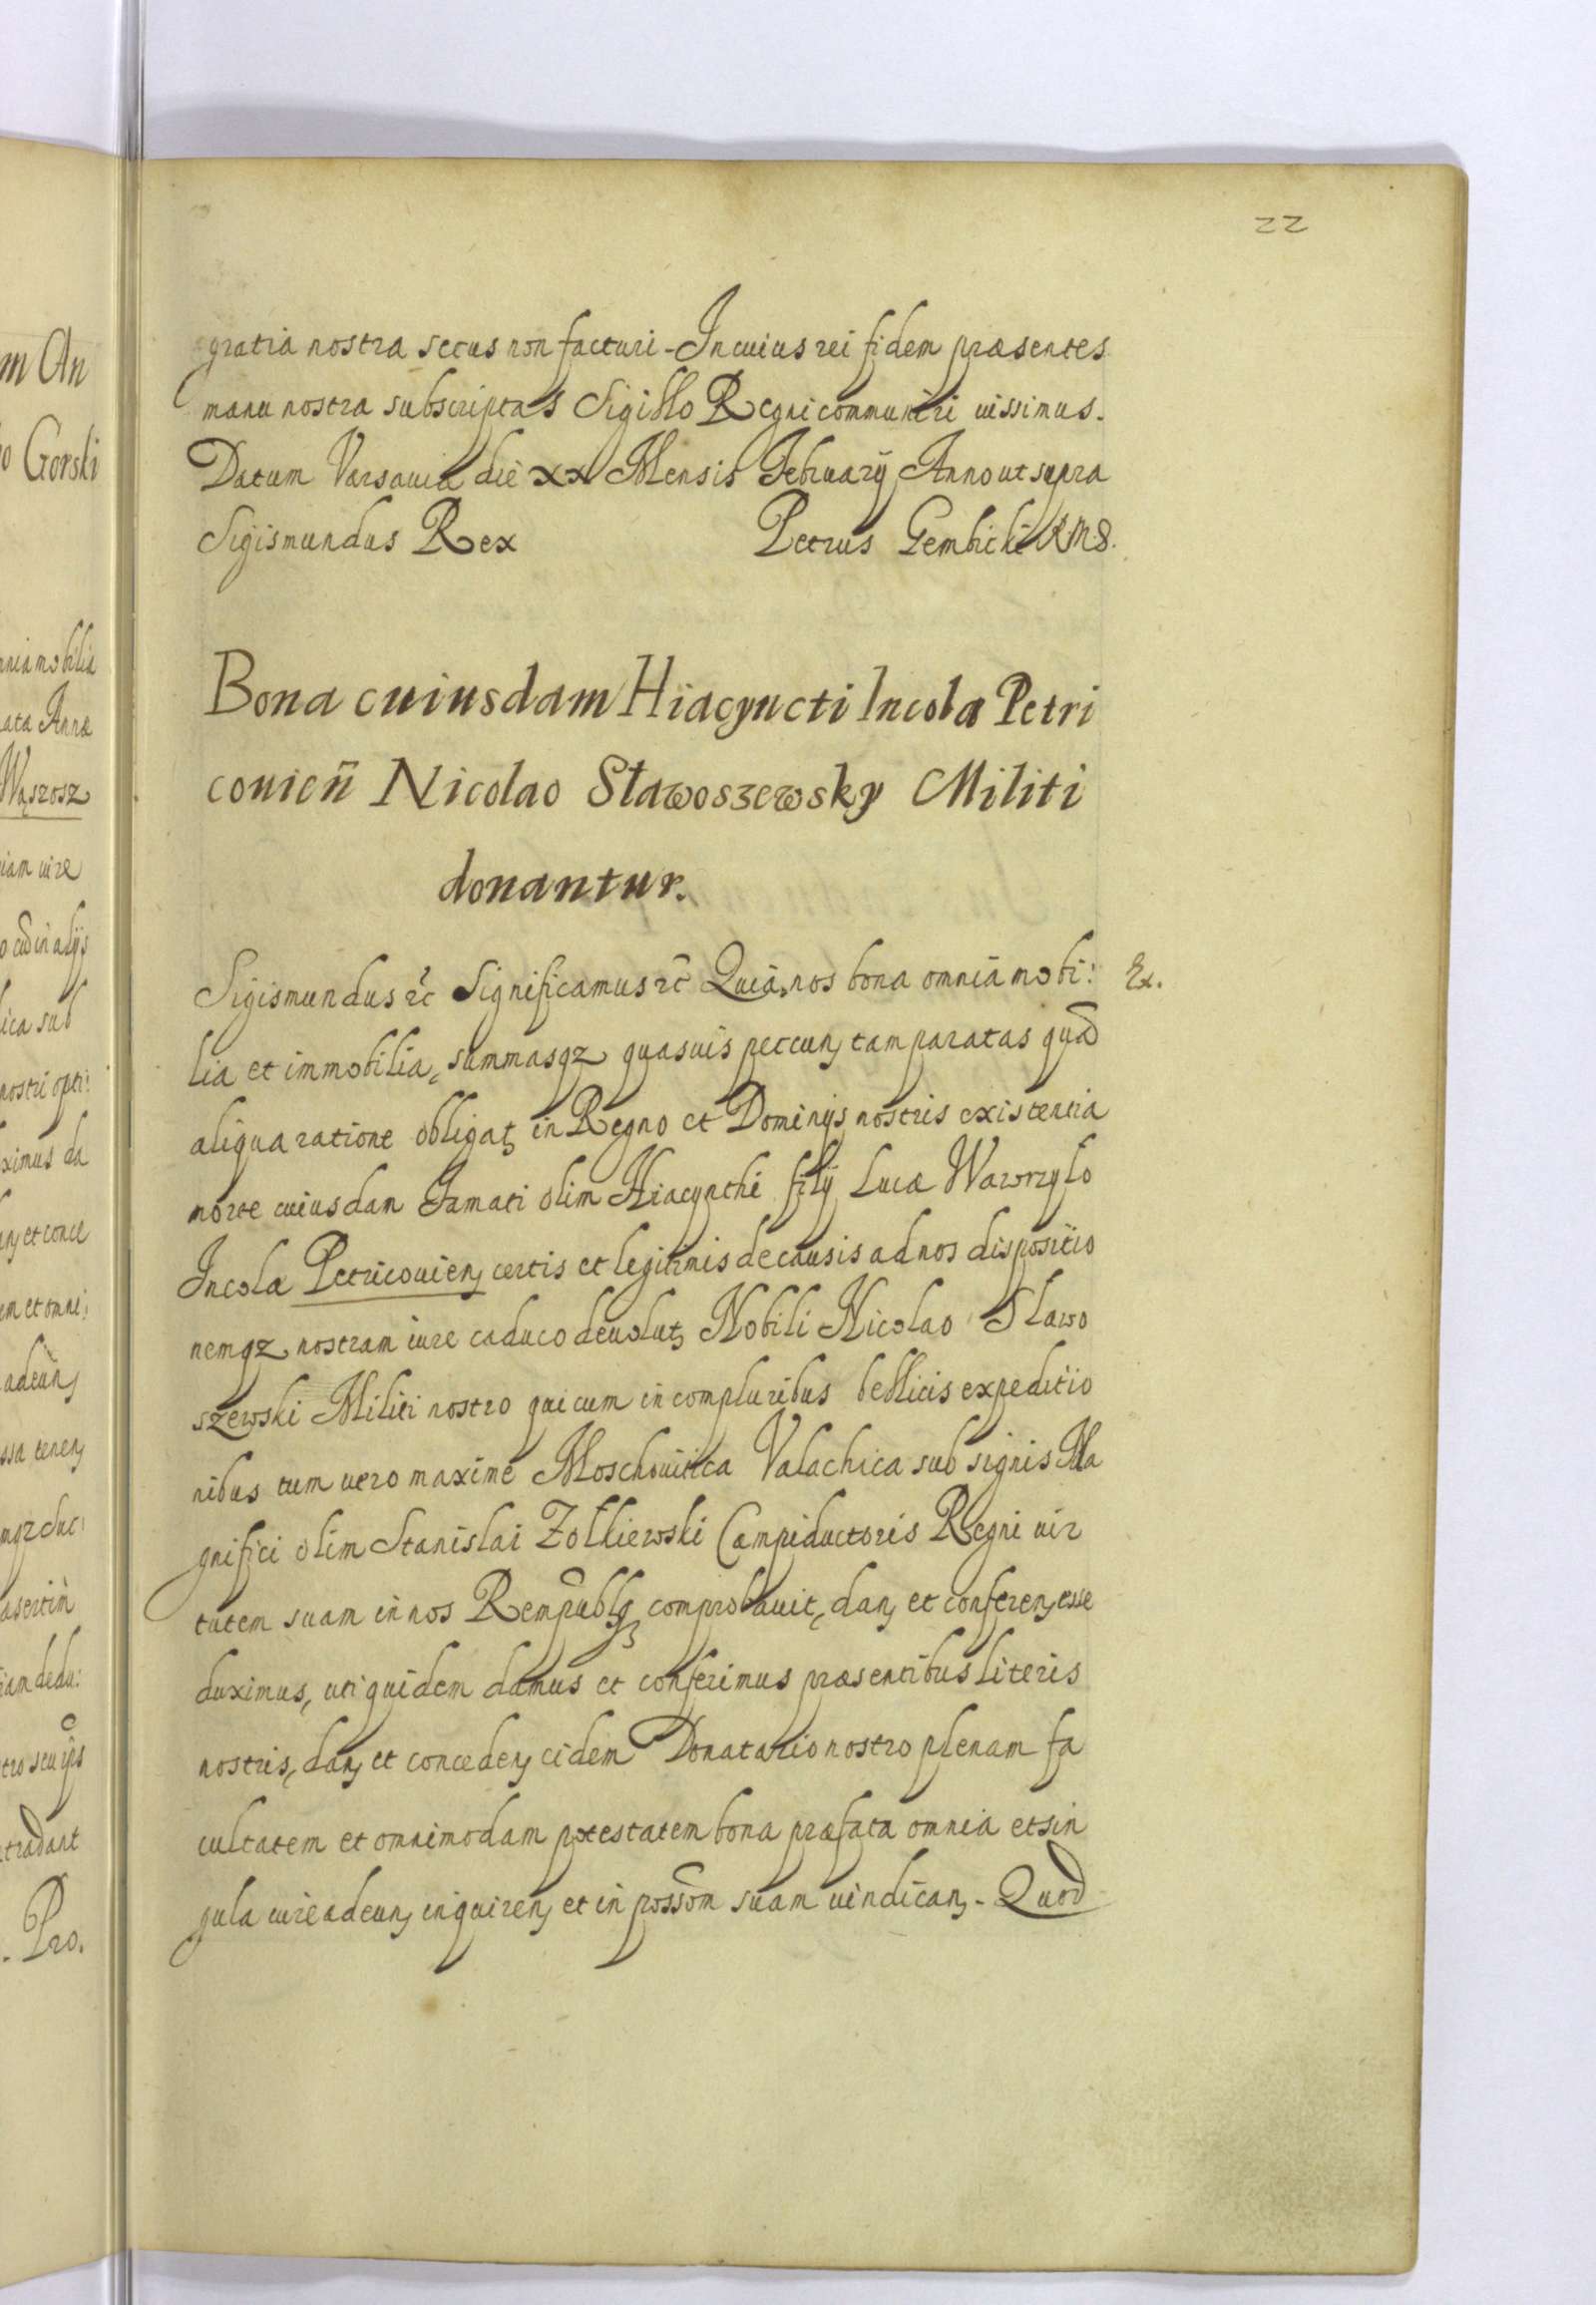 22
gratia nostra secus non facturi - In cuius rei fidem præsentes
manu nostra subscriptas Sigillo Regni communiri iussimus.
Datum Varsauiæ die xx Mensis February Anno ut supra
Sigismundus Rex Petrus Gembicki RMS.
Bona cuiusdam Hiacyncti Incola Petri
couien̄ Nicolao Stawoszewsky Militi
donantur.
Sigismundus etc̄ Significamus etc̄ Quia nos bona omnia mobi: Ex.
lia et immobilia, summasqz quasuis peccun, tam paratas quā
aliqua ratione obligat, in Regno et Dominÿs nostris existentia
morte cuiusdam Famati olim Hiacynthi filÿ Lucæ Wawrzyło
Incolæ Petricouien, certis et legitimis de causis ad nos dispositio
nemqz nostram iure caduco deuolut, Nobili Nicolao Slawo
szewski Militi nostro qui cum in compluribus bellicis expeditio
nibus tum uero maxime Moschouitica Valachica sub signis Ma
gnifici olim Stanislai Żołkiewski Campiductoris Regni uir
tutem suam in nos Rempublqz comprobauit, dan, et conferen, esse
duximus, uti quidem damus et conferimus præsentibus literis
nostris, dan, et conceden, eidem Donatario nostro plenam fa
cultatem et omnimodam potestatem bona præfata omnia et sin
gula iure adeun, inquiren, et in possom̄ suam uindican, - Quod